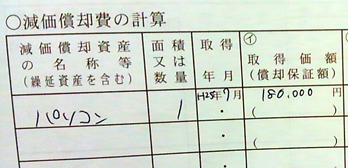 ○減価償却費の計算
減価償却資産の名称等(繰延資産を含む)
面積又は数量
取得年月
㋑取得価額(償却保証額)
パソコン 1 H25年7月 180,000円
・ ( )
・
( )